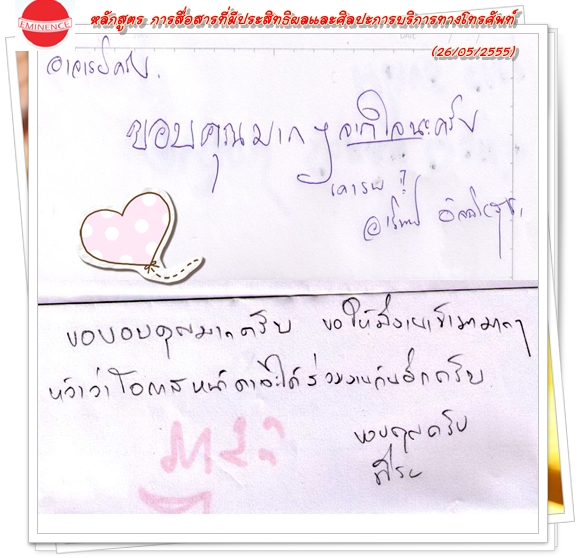 EMINENCE
หลักสูตร การสื่อสารที่มีประสิทธิผลและศิลปะการบริการทางโทรศัพท์
(26/05/2555)
อาจารย์ครับ.
ขอบคุณมาก ๆ จากใจนะครับ
เคารพ
ขอขอบคุณมากครับ ขอให้มีงานเข้ามามากๆ
หวังว่าโอกาสหน้าคงได้ร่วมงานกันอีกครับ
ขอบคุณครับ